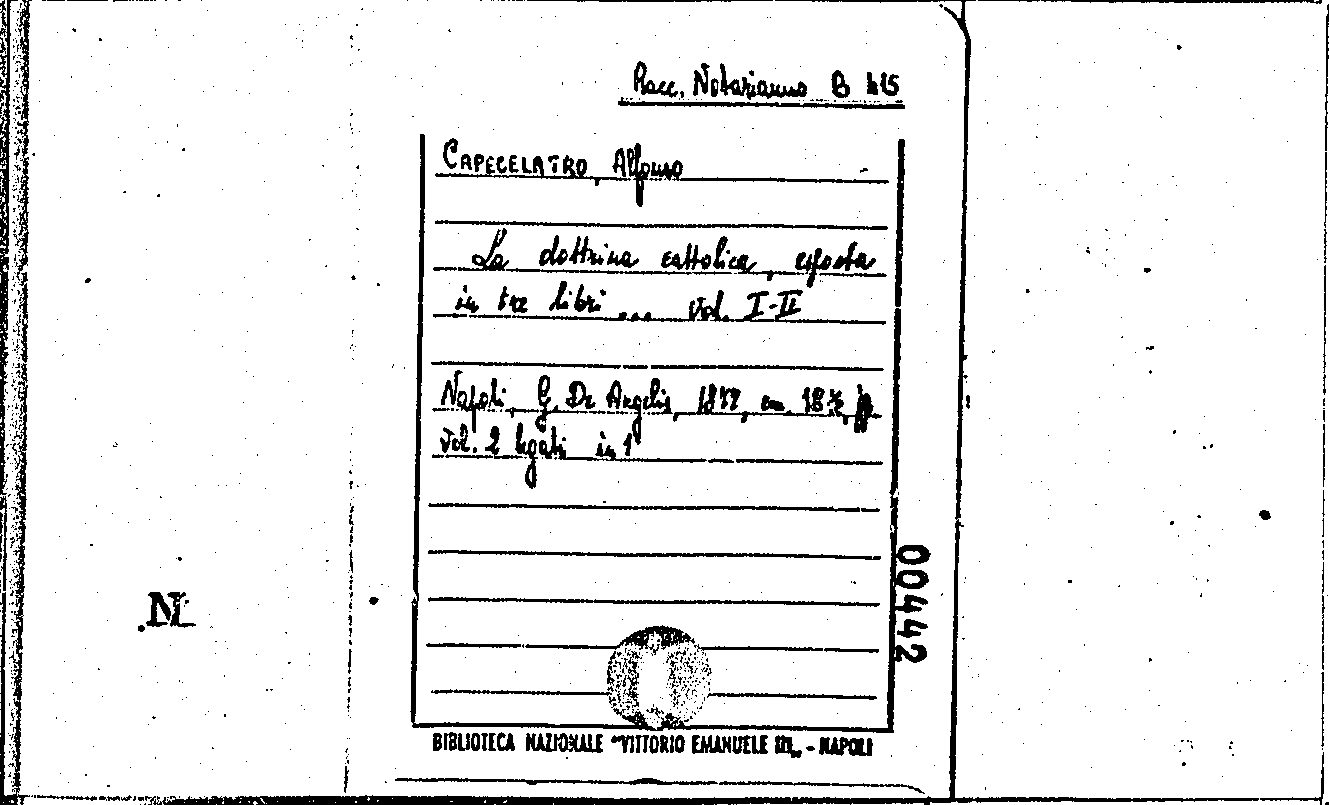 Racc. Notarianno B 415
CAPECELATRO, Alfonso
La dottrina cattolica, esposta
in tre libri ... vol. I-II
Napoli, G. De Angelis, 1877, cm. 18½,
vol. 2 legati in 1
00442
N
BIBLIOTECA NAZIONALE "VITTORIO EMANUELE III„ - NAPOLI